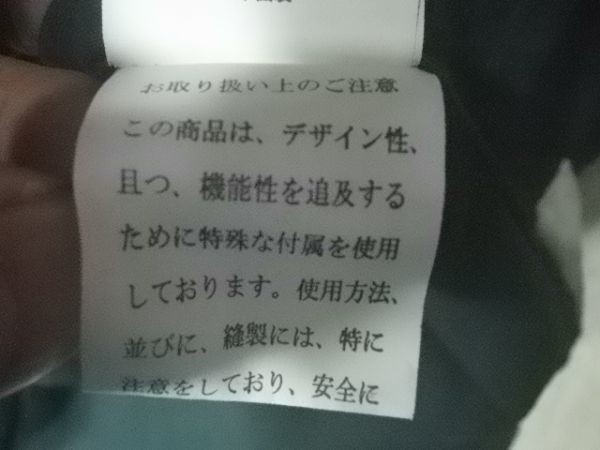 お取り扱い上のご注意
この商品は、デザイン性、
且つ、機能性を追及する
ために特殊な付属を使用
しております。使用方法、
並びに、縫製には、特に
注意をしており、安全に